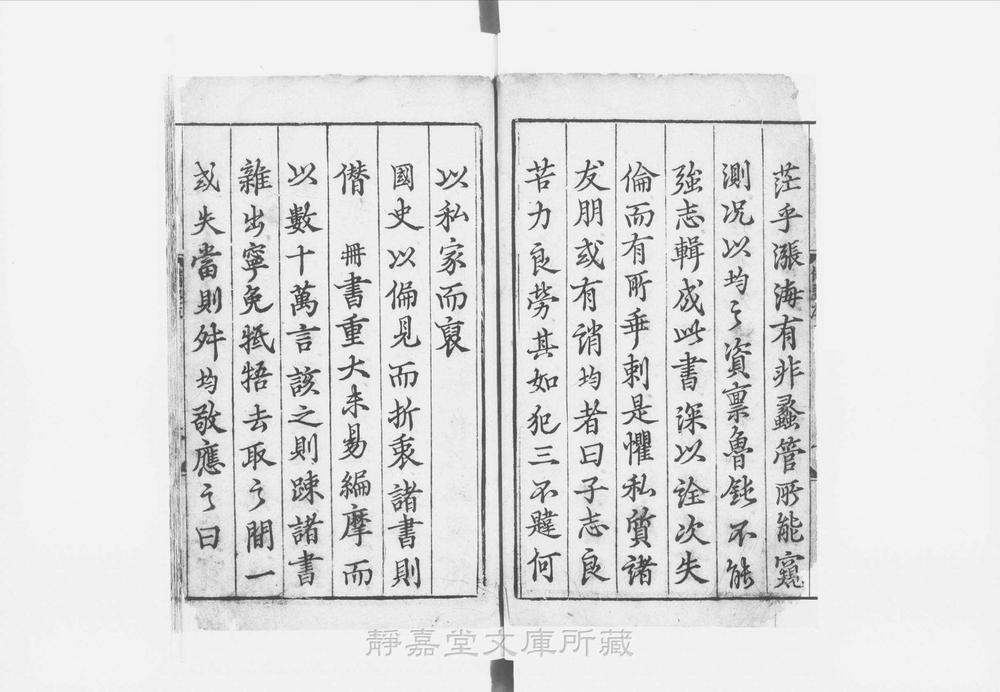 茫乎漲海有非蠡管所能窺
測况以均之資禀魯鈍不能
強志輯成此書深以詮次失
倫而有所乖剌是懼私質諸
友朋或有誚均者曰子志良
苦力良勞其如犯三不韙何
以私家而裒
國史以偏見而折衷諸書則
僭 冊書重大未易編摩而
以數十萬言該之則疎諸書
雜出寧免牴牾去取之間一
或失當則舛均敬應之曰
靜嘉堂文庫所藏